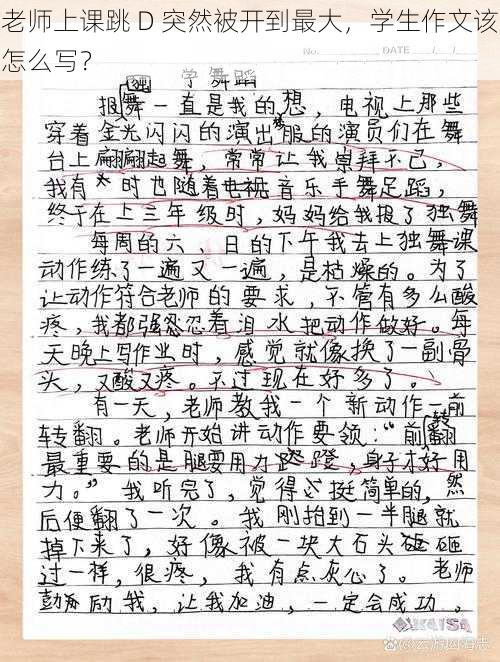 老师上课跳 D 突然被开到最大，学生作文该
怎么写？
DATE
学舞蹈
报独舞一直是我的梦想，电视上那些
穿着金光闪闪的演出服的演员们在舞
台上翩翩起舞，常常让我崇拜不已，
我有时也随着电视音乐手舞足蹈，
终于在上三年级时，妈妈给我报了独舞
每周的六、日的下午我去上独舞课
动作练了一遍又一遍，是枯燥的。为了
让动作符合老师的要求，不管有多么酸
疼，我都强忍忍着泪水把动作做好。每
天晚上写作业时，感觉就像换了一副骨
头，又酸又疼。不过现在好多了。
有一天，老师教我一个新动作—前
转翻。老师开始讲动作要领：“前转翻
最重要的是腿要用力蹬，身子才好用
力。”我听完了，觉得挺简单的，然
后便翻了一次。我刚抬到一半腿就
掉下来了，好像被一块大石头砸砸
过一样，很疼，我有点灰心了。老师
鼓励我，让我加油，一定会成功。